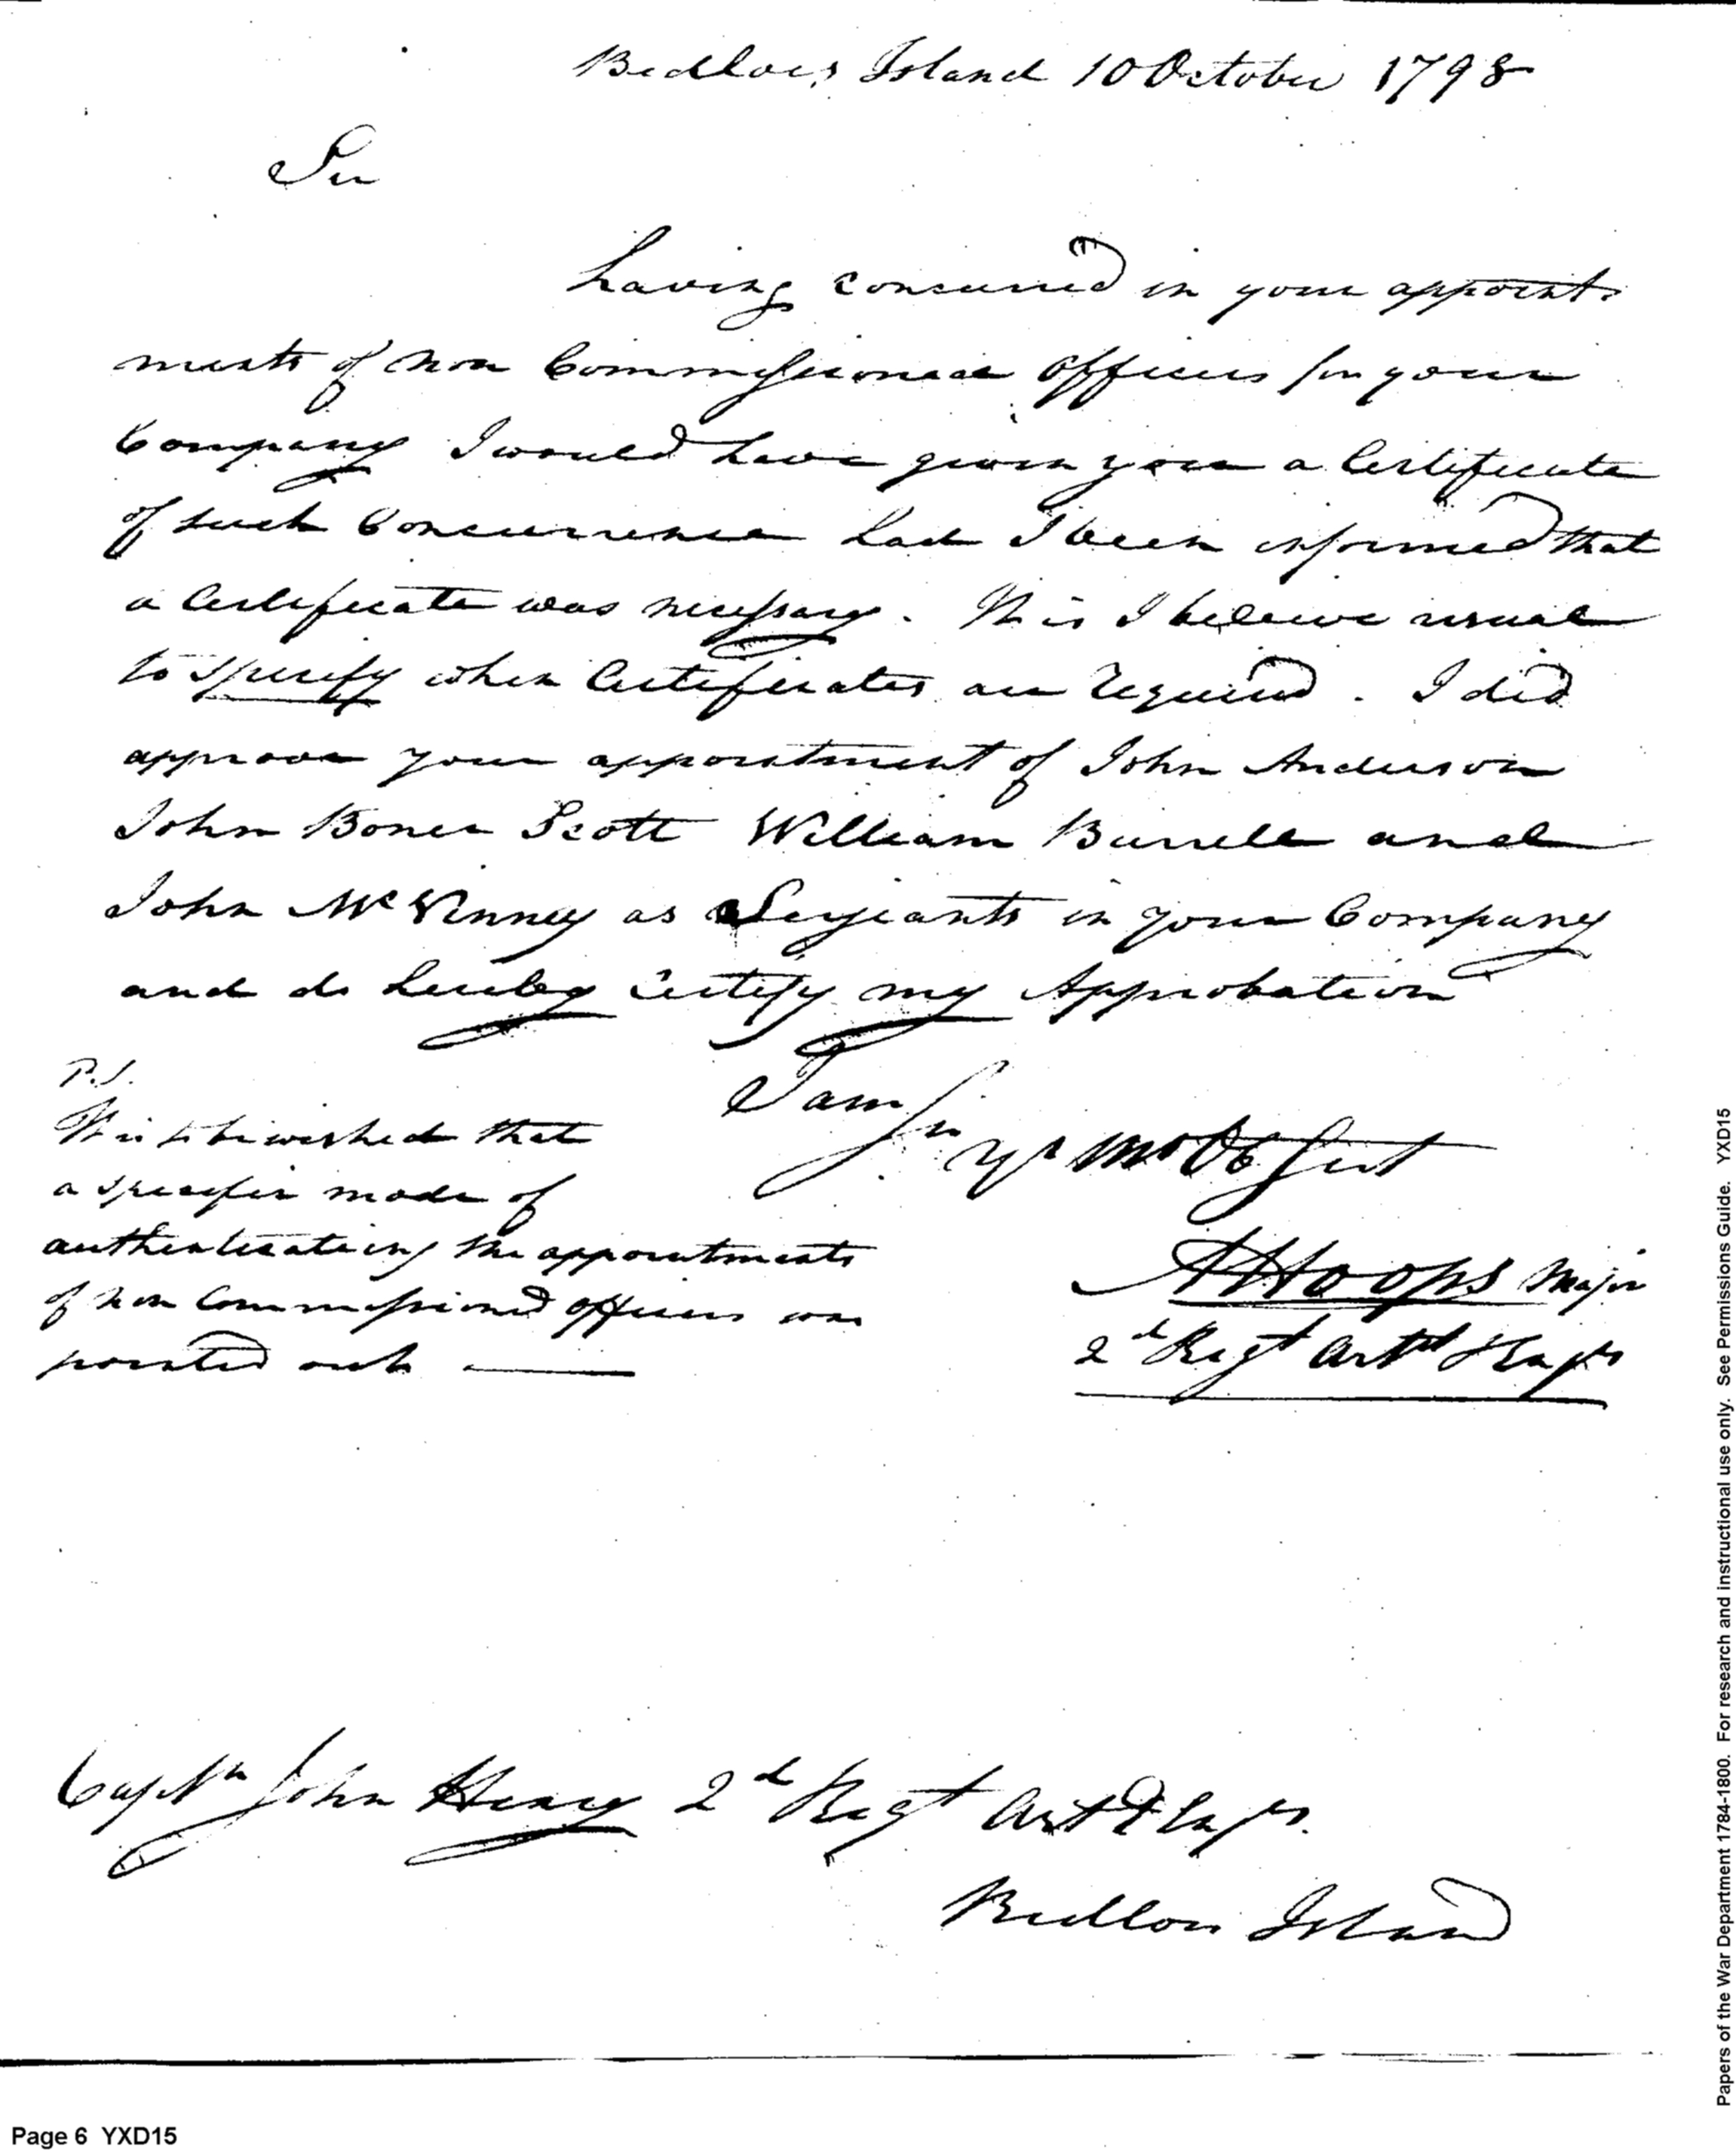 Bedloes Island 10 October 1798
Sir
Having concurred in your appoint-
ments of non Commissioned officers for your
Company I would have given you a Certificate
of such Concurrence had I been informed that
a Certificate was necessary. It is I believe usual
to specify when Certificates are required. I did
approve your appointment of John Anderson
John Bones Scott William Burrell and
John McKinney as Sergeants in your Company
and do hereby Certify my Approbation
I am
Sir
Yr Mo Ob Sert
AHoops Major
2d Regt Art & Engrs
P.S.
It is to be wished that
a specific mode of
authenticating the appointments
of non Commissioned officers was
pointed out
Captn John Henry 2d Regt Art & Engrs.
Bedlow Island
Page 6 YXD15
Papers of the War Department 1784-1800. For research and instructional use only. See Permissions Guide. YXD15